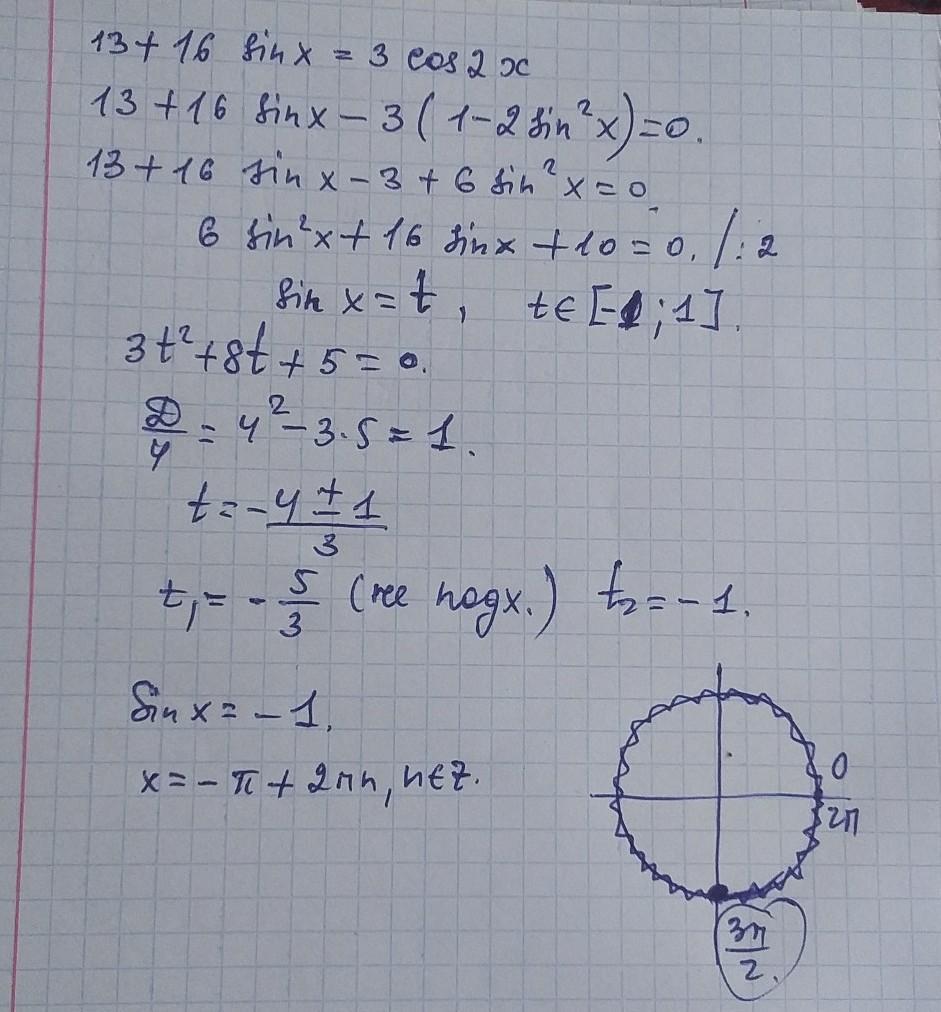 13 + 16 sin x = 3 cos 2x
13 + 16 sin x − 3(1 − 2 sin²x) = 0.
13 + 16 sin x − 3 + 6 sin²x = 0.
6 sin²x + 16 sin x + 10 = 0. /:2
sin x = t, t ∈ [-1; 1].
3t² + 8t + 5 = 0.
D/4 = 4² − 3·5 = 1.
t = (-4 ± 1)/3
t₁ = -5/3 (не подх.) t₂ = -1.
Sin x = -1.
x = -π + 2πn, n ∈ Z.
0
2π
3π/2.